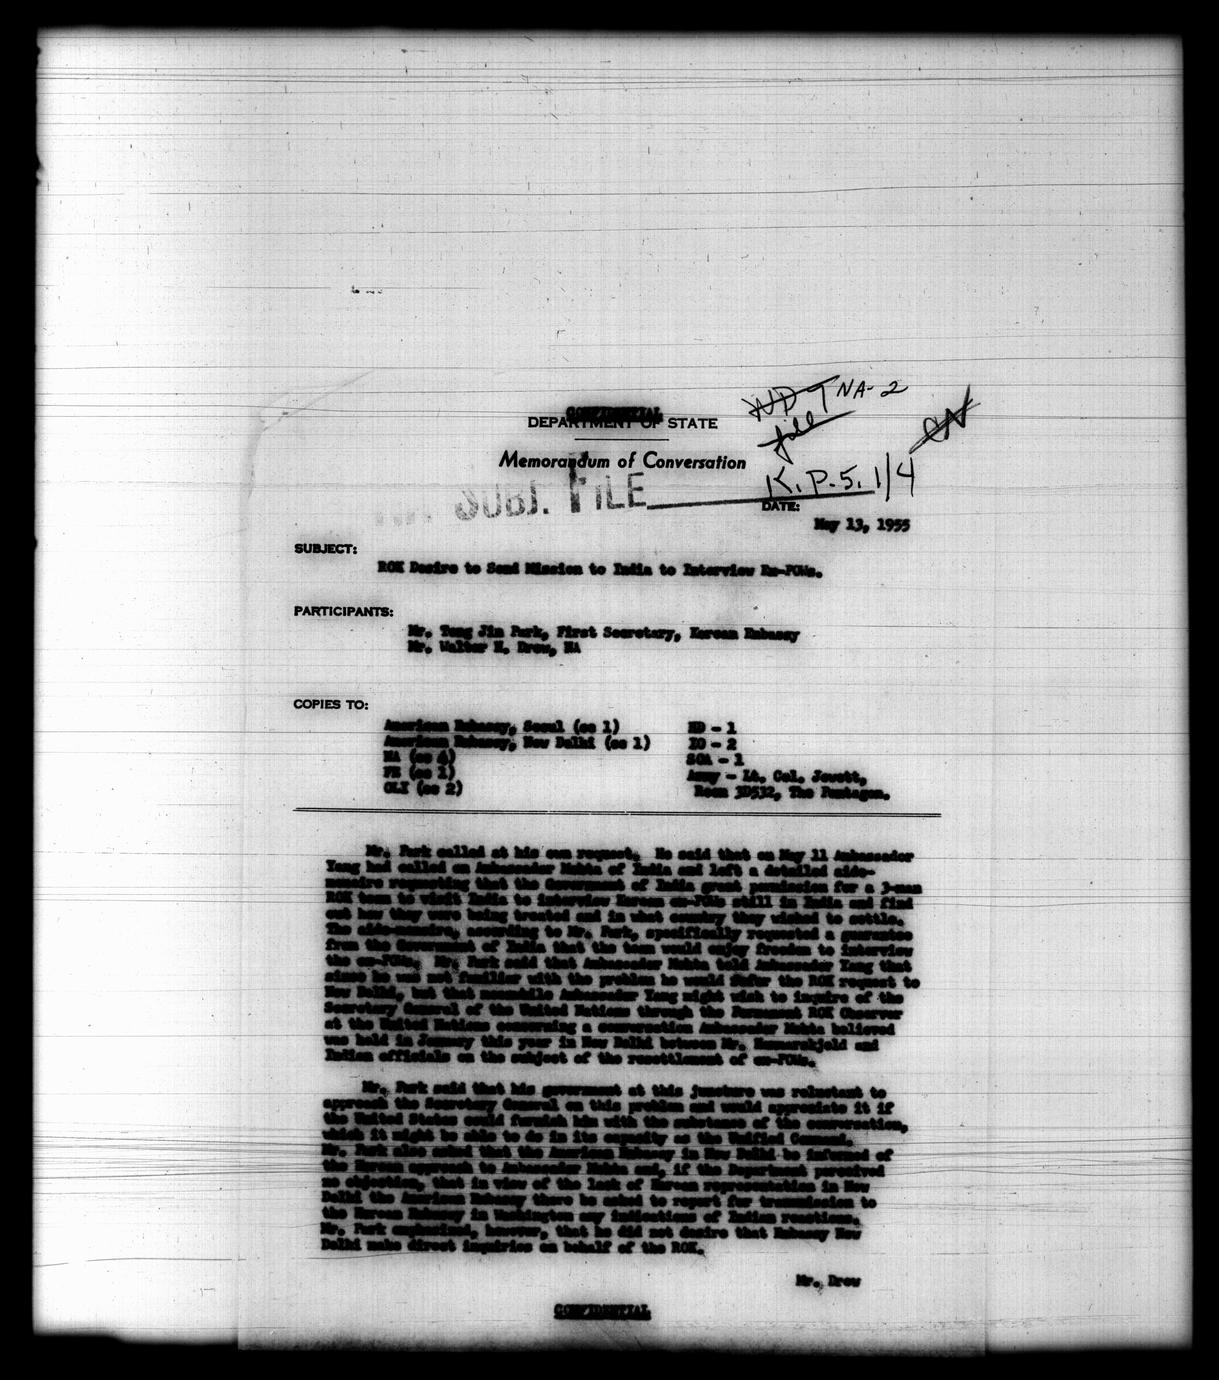 CONFIDENTIAL
DEPARTMENT OF STATE
Memorandum of Conversation
NA-2
file
SUBJ. FILE
K.P.5.1/4
DATE:
May 13, 1955
SUBJECT:
ROK Desire to Send Mission to India to Interview Ex-POWs.
PARTICIPANTS:
Mr. Tong Jin Park, First Secretary, Korean Embassy
Mr. Walter N. Drew, NA
COPIES TO:
American Embassy, Seoul (cc 1)
American Embassy, New Delhi (cc 1)
NA (cc 4)
FE (cc 1)
OLI (cc 2)
ND - 1
IO - 2
SOA - 1
Army - Lt. Col. Jewett,
Room 3D532, The Pentagon.
Mr. Park called at his own request. He said that on May 11 Ambassador
Yang had called on Ambassador Mehta of India and left a detailed aide-
memoire requesting that the Government of India grant permission for a 3-man
ROK team to visit India to interview Korean ex-POWs still in India and find
out how they were being treated and in what country they wished to settle.
The aide-memoire, according to Mr. Park, specifically requested a guarantee
from the Government of India that the team would enjoy freedom to interview
the ex-POWs. Mr. Park said that Ambassador Mehta told Ambassador Yang that
since he was not familiar with the problem he would refer the ROK request to
New Delhi, but that meanwhile Ambassador Yang might wish to inquire of the
Secretary General of the United Nations through the Permanent ROK Observer
at the United Nations concerning a conversation Ambassador Mehta believed
was held in January this year in New Delhi between Mr. Hammarskjold and
Indian officials on the subject of the resettlement of ex-POWs.
Mr. Park said that his government at this juncture was reluctant to
approach the Secretary General on this problem and would appreciate it if
the United States could furnish him with the substance of the conversation,
which it might be able to do in its capacity as the Unified Command.
Mr. Park also asked that the American Embassy in New Delhi be informed of
the Korean approach to Ambassador Mehta and, if the Department perceived
no objection, that in view of the lack of Korean representation in New
Delhi the American Embassy there be asked to report for transmission to
the Korean Embassy in Washington any indications of Indian reactions.
Mr. Park emphasized, however, that he did not desire that Embassy New
Delhi make direct inquiries on behalf of the ROK.
Mr. Drew
CONFIDENTIAL